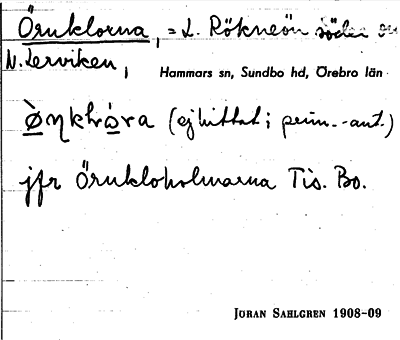 Örnklorna, = L. Rökneön söder om
N. Lerviken, Hammars sn, Sundbo hd, Örebro län
(ej hittat; prim.-ant.)
jfr Örnkloholmarna Tis. Bo.
JÖRAN SAHLGREN 1908-09